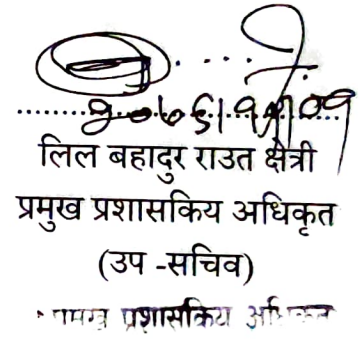 लिल बहादुर राउत क्षेत्री
प्रमुख प्रशासकिय अधिकृत
(उप -सचिव)
प्रमुख प्रशासकिय अधिकृत